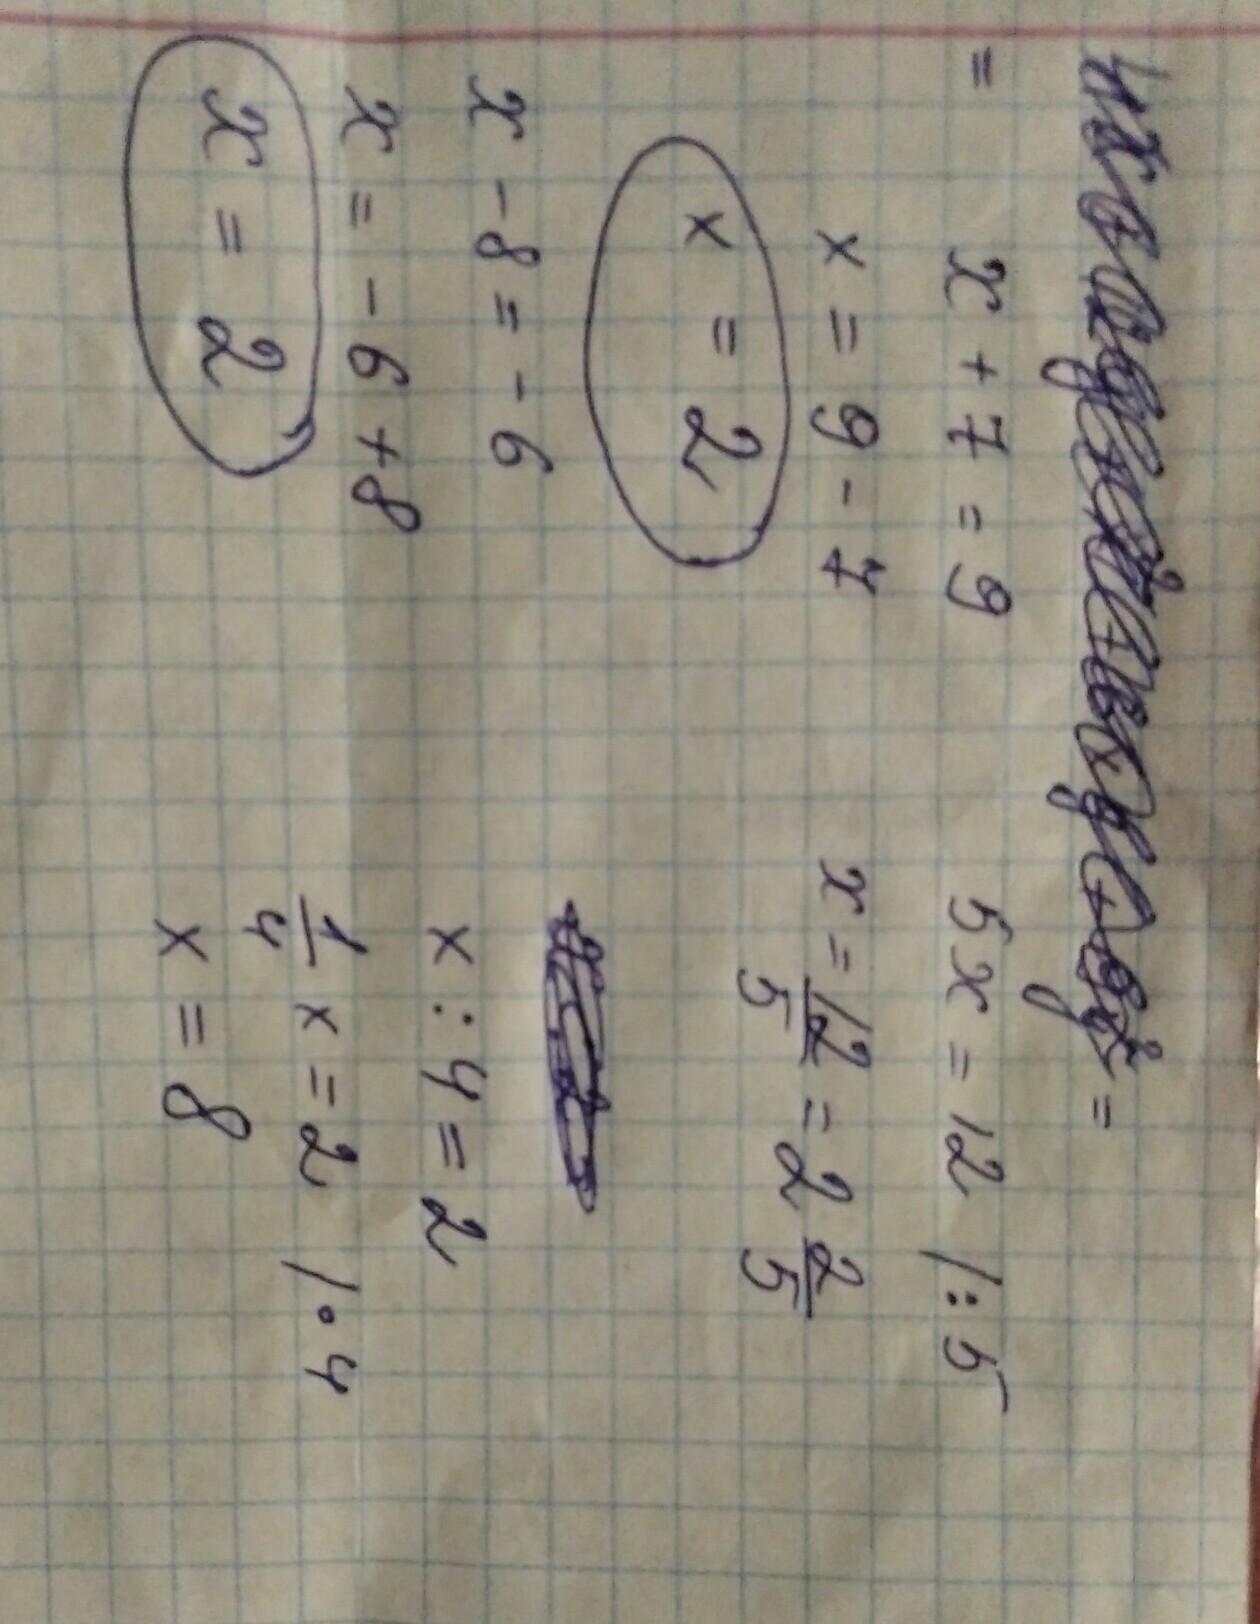 =
=
x + 7 = 9
x = 9 - 7
x = 2
x - 8 = - 6
x = - 6 + 8
x = 2
5x = 12 /: 5
x = 12/5 = 2 2/5
x : 4 = 2
1/4 x = 2 / · 4
x = 8